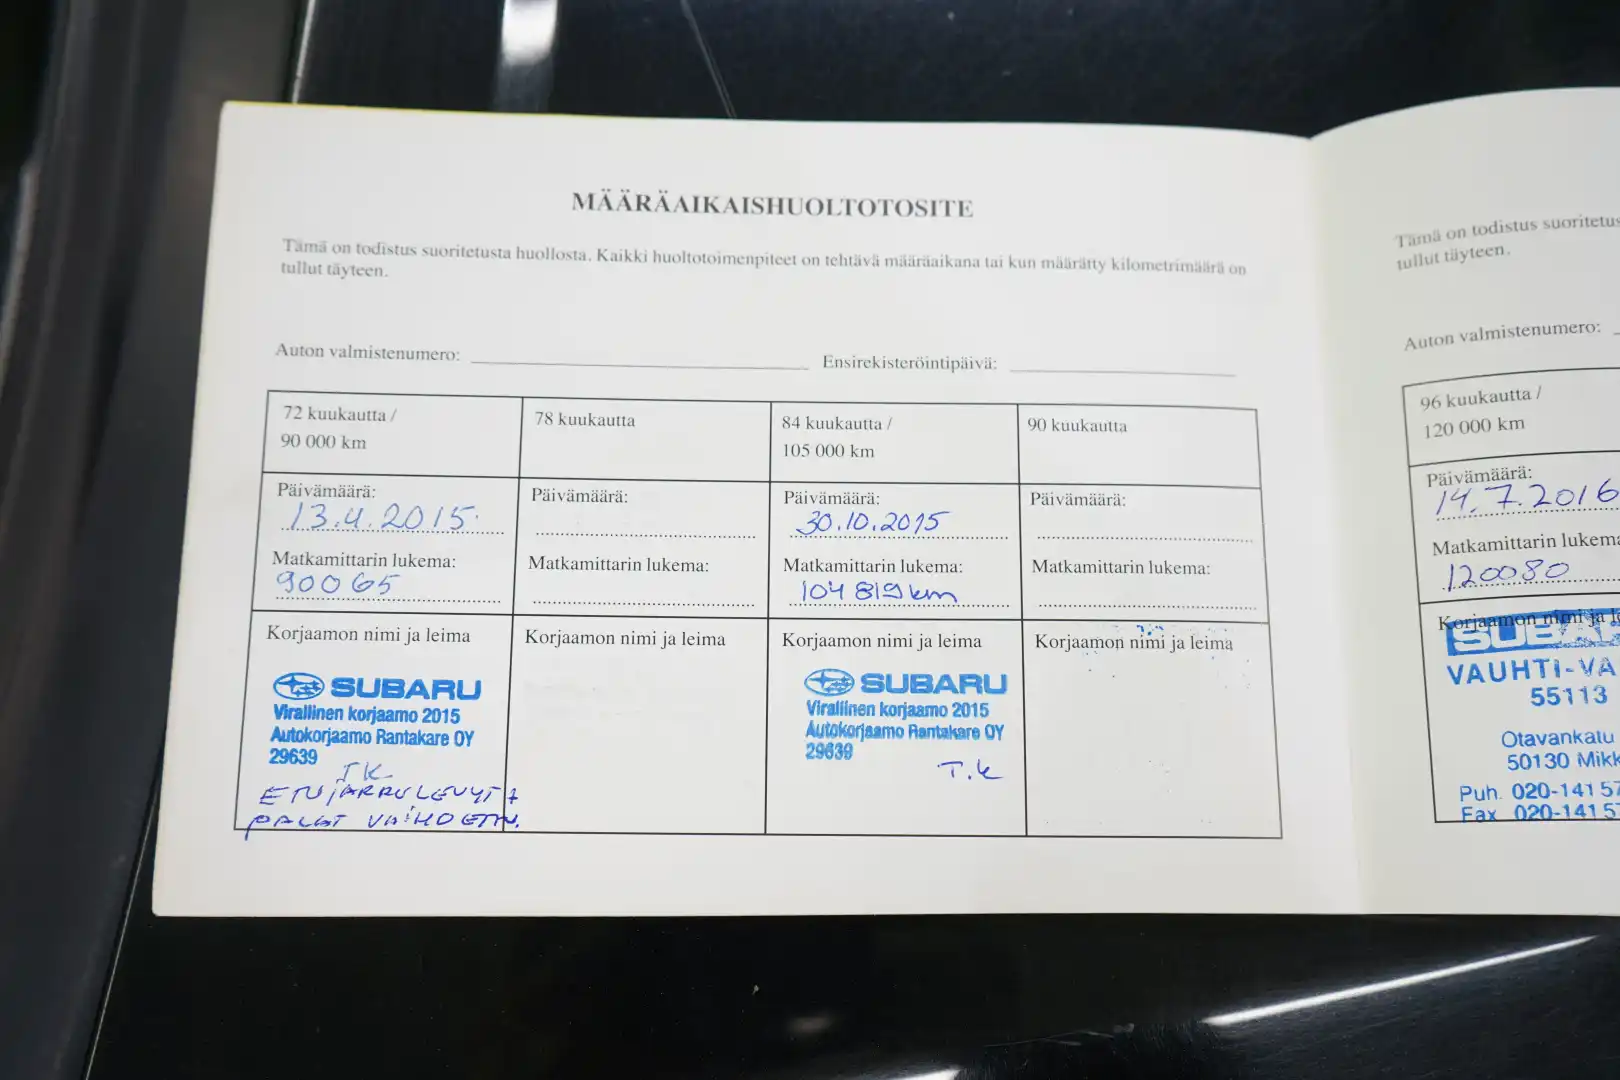 MÄÄRÄAIKAISHUOLTOTOSITE
Tämä on todistus suoritetusta huollosta. Kaikki huoltotoimenpiteet on tehtävä määräaikana tai kun määrätty kilometrimäärä on
tullut täyteen.
Auton valmistenumero:
Ensirekisteröintipäivä:
72 kuukautta /
90 000 km
Päivämäärä:
13.4.2015
Matkamittarin lukema:
90065
Korjaamon nimi ja leima
SUBARU
Virallinen korjaamo 2015
Autokorjaamo Rantakare OY
29639
TK
ETUJARRULEVYT +
PALAT VAIHDETTU.
78 kuukautta
Päivämäärä:
Matkamittarin lukema:
Korjaamon nimi ja leima
84 kuukautta /
105 000 km
Päivämäärä:
30.10.2015
Matkamittarin lukema:
104 819 km
Korjaamon nimi ja leima
SUBARU
Virallinen korjaamo 2015
Autokorjaamo Rantakare OY
29639
T.K
90 kuukautta
Päivämäärä:
Matkamittarin lukema:
Korjaamon nimi ja leima
Tämä on todistus suoritetus
tullut täyteen.
Auton valmistenumero:
96 kuukautta /
120 000 km
Päivämäärä:
14.7.2016
Matkamittarin lukema
120080
Korjaamon nimi ja le
SUBAR
VAUHTI-VA
55113
Otavankatu
50130 Mikk
Puh. 020-141 57
Fax 020-141 5